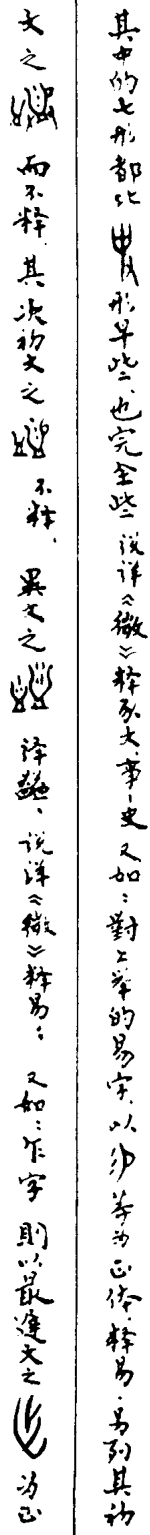 其中的七形都比形早些、也完全些、说详《徵》释豕犬、事史又如：對上举的易字，以等为正体，释易，易列其初
文之而不释，其次初文之不释，异文之译，说详《徵》释易；又如：乍字則以最進文之为正